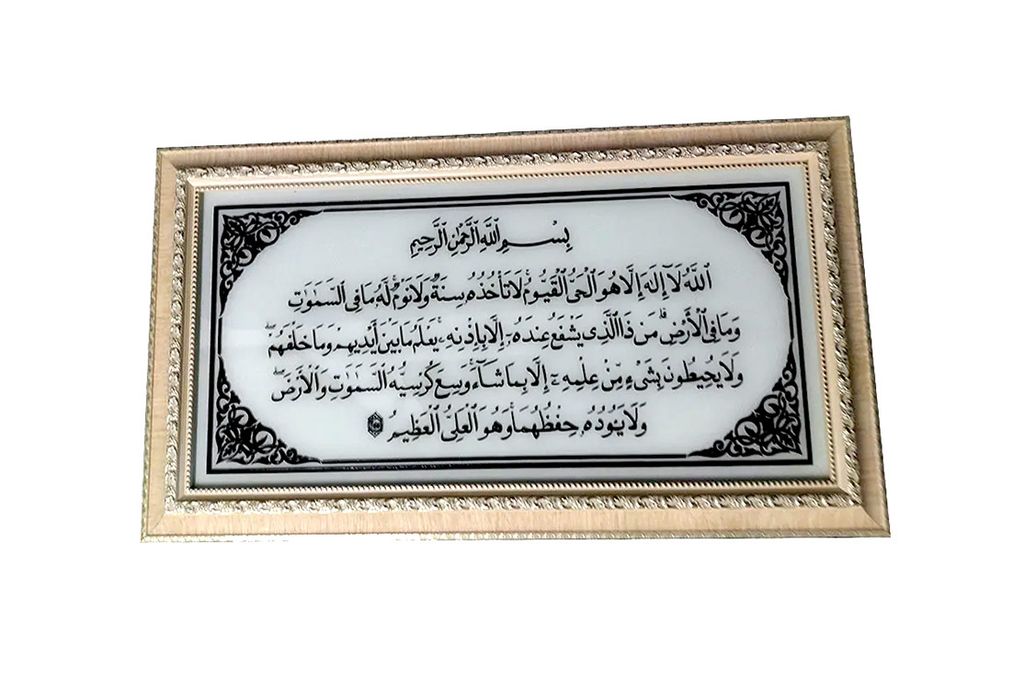 بِسْمِ ٱللَّهِ ٱلرَّحْمَٰنِ ٱلرَّحِيمِ
ٱللَّهُ لَآ إِلَٰهَ إِلَّا هُوَ ٱلْحَىُّ ٱلْقَيُّومُ ۚ لَا تَأْخُذُهُۥ سِنَةٌ وَلَا نَوْمٌ ۚ لَّهُۥ مَا فِى ٱلسَّمَٰوَٰتِ
وَمَا فِى ٱلْأَرْضِ ۗ مَن ذَا ٱلَّذِى يَشْفَعُ عِندَهُۥٓ إِلَّا بِإِذْنِهِۦ ۚ يَعْلَمُ مَا بَيْنَ أَيْدِيهِمْ وَمَا خَلْفَهُمْ ۖ
وَلَا يُحِيطُونَ بِشَىْءٍ مِّنْ عِلْمِهِۦٓ إِلَّا بِمَا شَآءَ ۚ وَسِعَ كُرْسِيُّهُ ٱلسَّمَٰوَٰتِ وَٱلْأَرْضَ ۖ
وَلَا يَـُٔودُهُۥ حِفْظُهُمَا ۚ وَهُوَ ٱلْعَلِىُّ ٱلْعَظِيمُ ٢٥٥